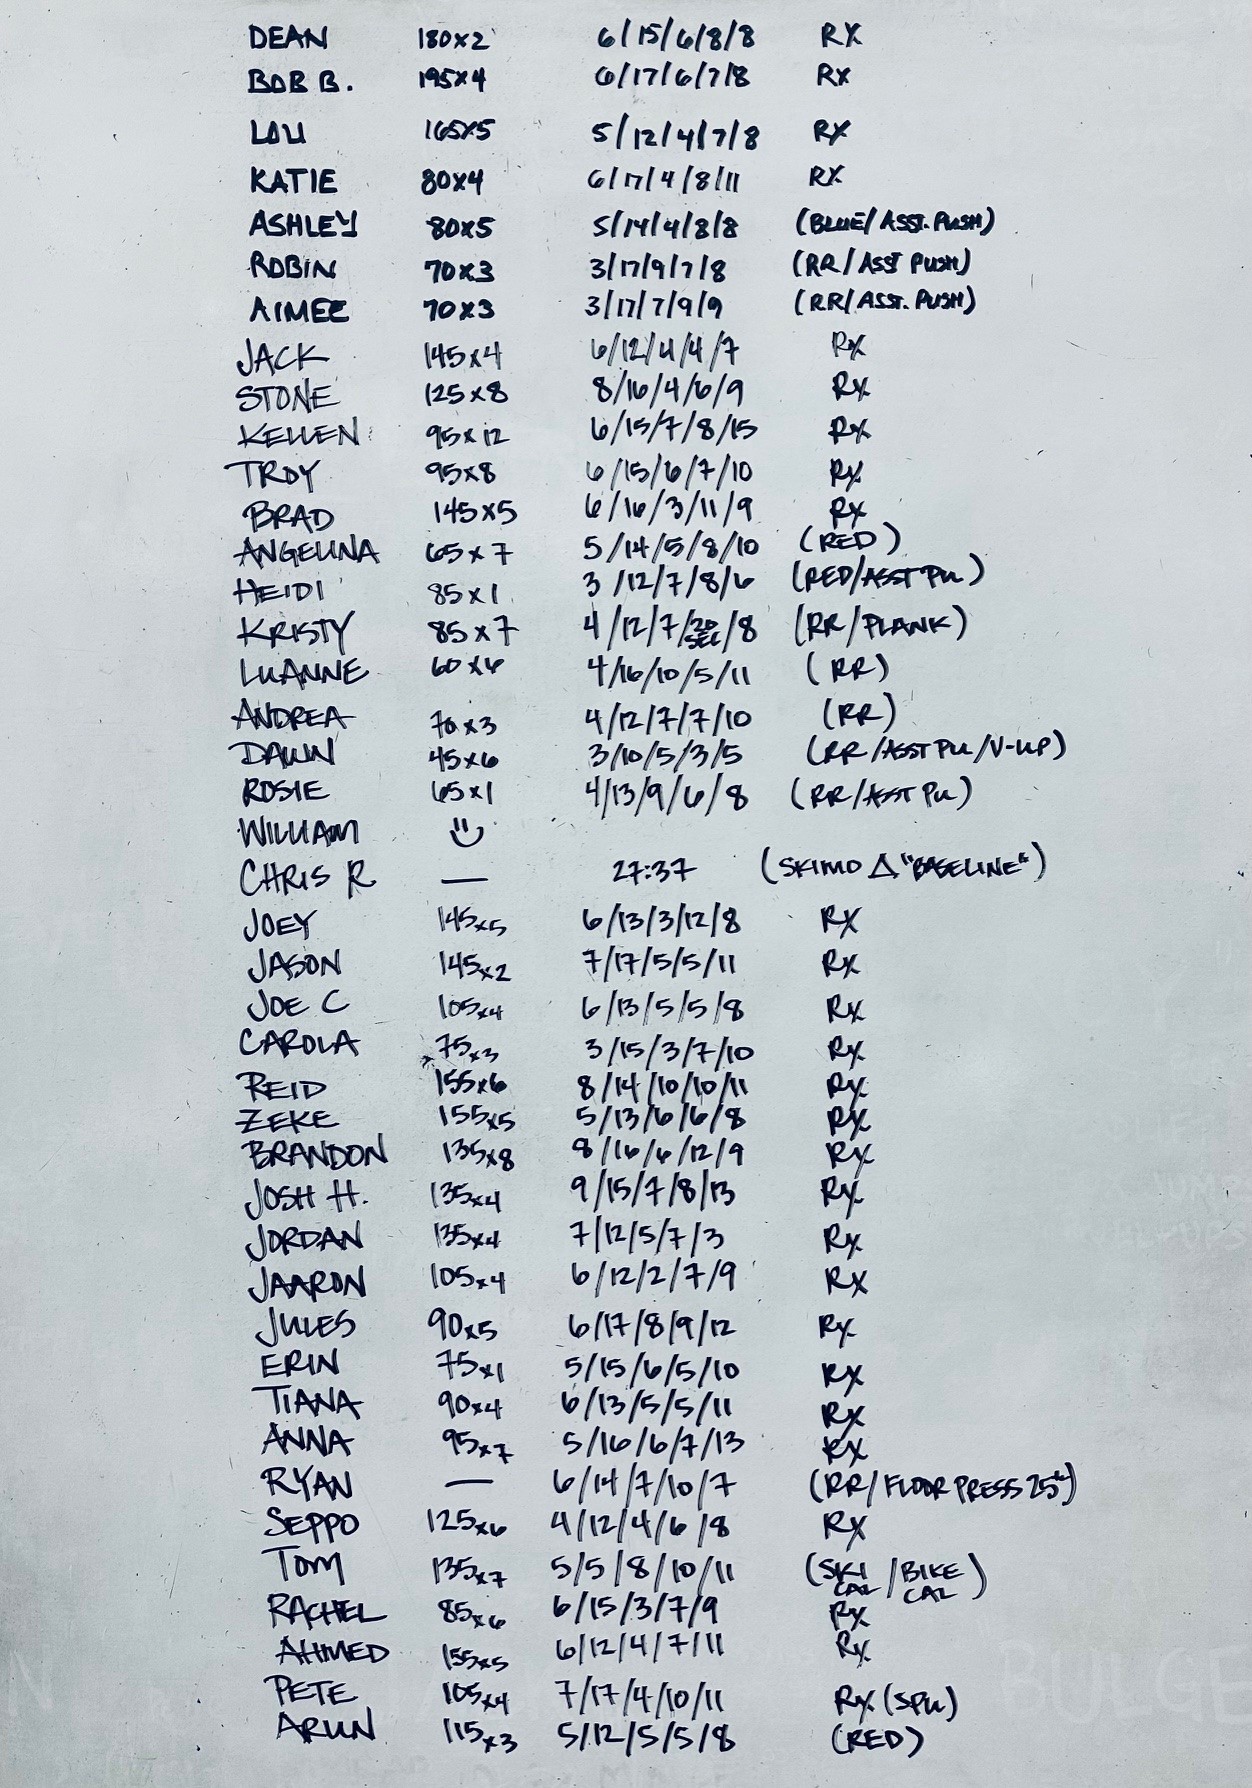 DEAN 180x2 6/15/6/8/8 RX
BOB B. 195x4 6/17/6/7/8 RX
LOU 165x5 5/12/4/7/8 RX
KATIE 80x4 6/17/4/8/11 RX
ASHLEY 80x5 5/14/4/8/8 (BLUE/ASST. PUSH)
ROBIN 70x3 3/17/9/7/8 (RR/ASST PUSH)
AIMEE 70x3 3/17/7/9/9 (RR/ASST. PUSH)
JACK 145x4 6/12/4/4/7 Rx
STONE 125x8 8/16/4/6/9 Rx
KELLEN 95x12 6/15/7/8/15 Rx
TROY 95x8 6/15/6/7/10 Rx
BRAD 145x5 6/16/3/11/9 Rx
ANGELINA 65x7 5/14/5/8/10 (RED)
HEIDI 85x1 3/12/7/8/6 (RED/ASST PU)
KRISTY 85x7 4/12/7/20 SEC/8 (RR/PLANK)
LUANNE 60x6 4/16/10/5/11 (RR)
ANDREA 70x3 4/12/7/7/10 (RR)
DAWN 45x6 3/10/5/3/5 (RR/ASST PU/V-UP)
ROSIE 65x1 4/13/9/6/8 (RR/ASST PU)
WILLIAM
CHRIS R — 27:37 (SKIMO Δ "BASELINE")
JOEY 145x5 6/13/3/12/8 RX
JASON 145x2 7/17/5/5/11 Rx
JOE C 105x4 6/13/5/5/8 Rx
CAROLA 75x3 3/15/3/7/10 Rx
REID 155x6 8/14/10/10/11 Rx
ZEKE 155x5 5/13/6/6/8 Rx
BRANDON 135x8 8/16/6/12/9 Rx
JOSH H. 135x4 9/15/7/8/13 Rx
JORDAN 135x4 7/12/5/7/3 Rx
JAARON 105x4 6/12/2/7/9 RX
JULES 90x5 6/17/8/9/12 Rx
ERIN 75x1 5/15/6/5/10 RX
TIANA 90x4 6/13/5/5/11 RX
ANNA 95x7 5/16/6/7/13 RX
RYAN — 6/14/7/10/7 (RR/FLOOR PRESS 25#)
SEPPO 125x6 4/12/4/6/8 RX
TOM 135x7 5/5/8/10/11 (SKI CAL/BIKE CAL)
RACHEL 85x6 6/15/3/7/9 Rx
AHMED 155x5 6/12/4/7/11 Rx
PETE 105x4 7/17/4/10/11 Rx (SPU)
ARUN 115x3 5/12/5/5/8 (RED)
BULGE